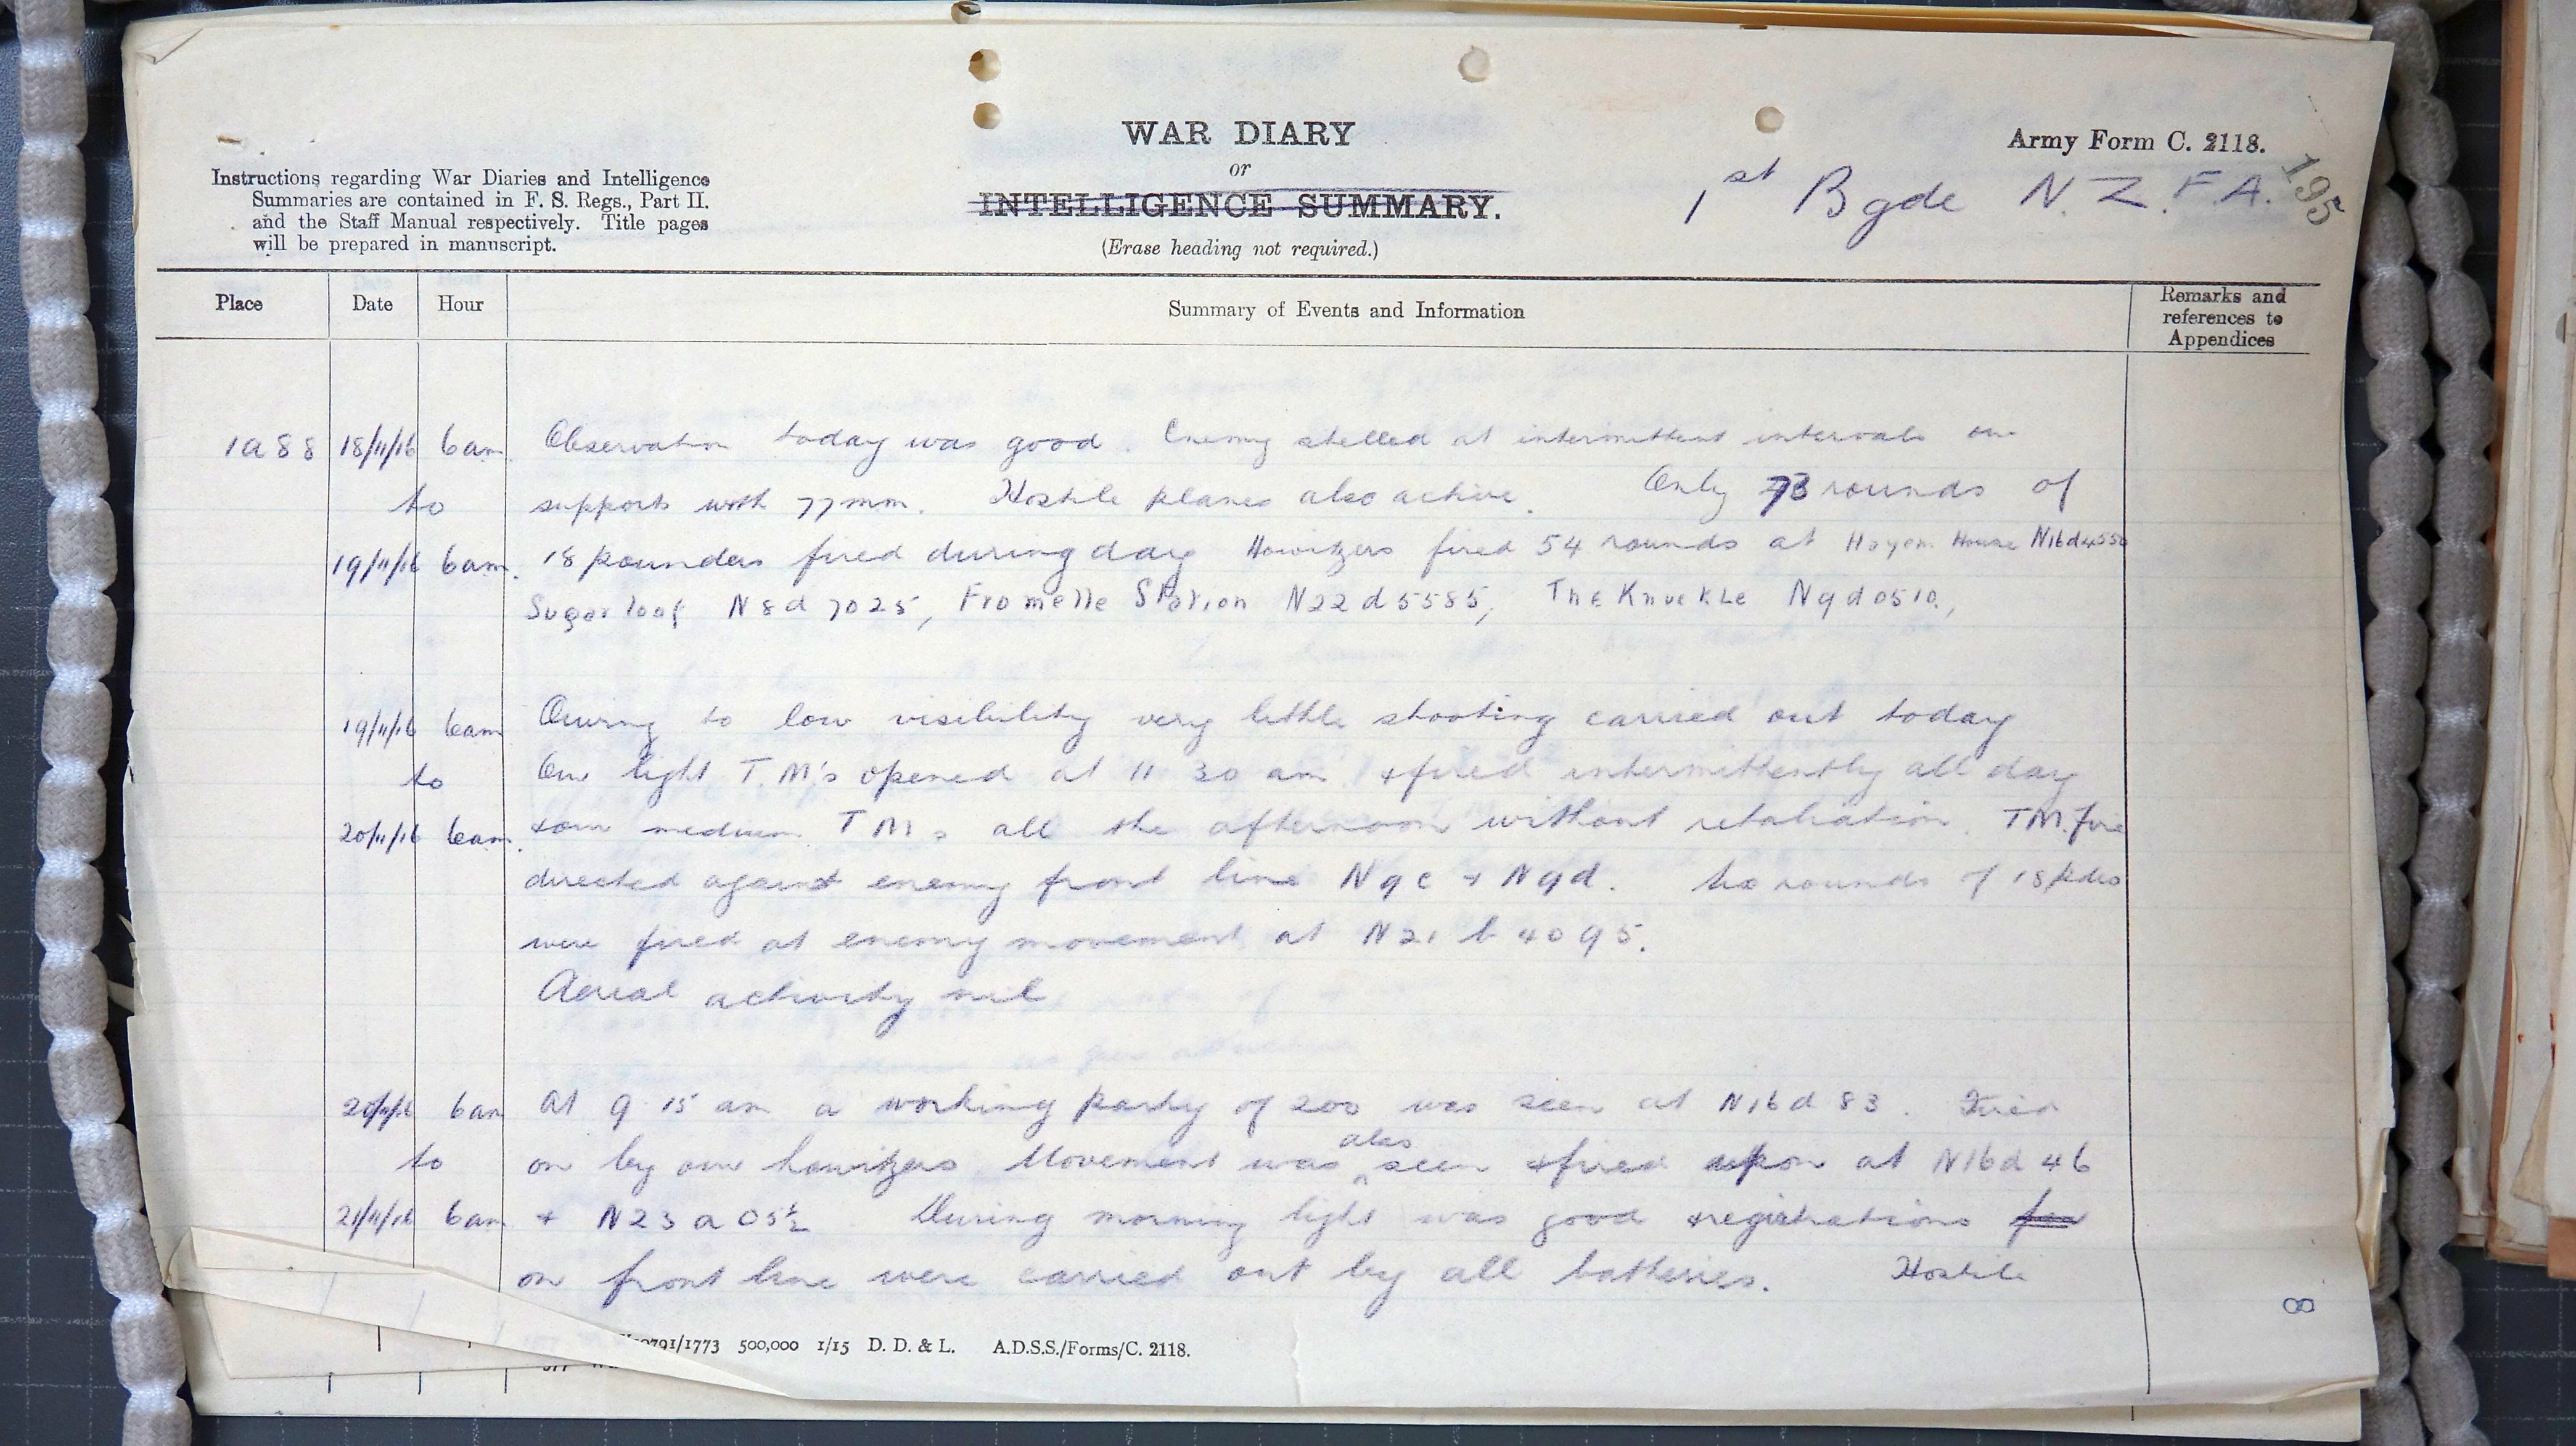 WAR DIARY
or
INTELLIGENCE SUMMARY.
(Erase heading not required.)
Army Form C. 2118.
195
1st Bgde N.Z.F.A.
Instructions regarding War Diaries and Intelligence
Summaries are contained in F. S. Regs., Part II.
and the Staff Manual respectively. Title pages
will be prepared in manuscript.
Place Date Hour Summary of Events and Information Remarks and
references to
Appendices
1a88 18/11/16 6am. Observation today was good. Enemy shelled at intermittent intervals our
to supports with 77mm. Hostile planes also active. Only 73 rounds of
19/11/16 6am. 18 pounders fired during day Howitzers fired 54 rounds at House N16d4550
Sugar loaf N8d 7025, Fromelle Station N22d5585, The Knuckle N9d0510.,
19/11/16 6am Owing to low visibility very little shooting carried out today
to Our light T.M's opened at 11 30 am +fired intermittently all day
20/11/16 6am. +our medium T M s all the afternoon without retaliation. T.M. fire
directed against enemy front line N9c + N9d. rounds of 18pdrs
were fired at enemy movement at N21 b 4095.
Aerial activity nil
20/11/16 6am At 9 15 am a working party of 200 was seen at N16d 83. Fired
to on by our howitzers. Movement was also seen +fired upon at N16d 46
21/11/16 6am + N23 a 05½ During morning light was good +registrations for
on front line were carried out by all batteries. Hostile
8
0791/1773 500,000 1/15 D. D. & L. A.D.S.S./Forms/C. 2118.